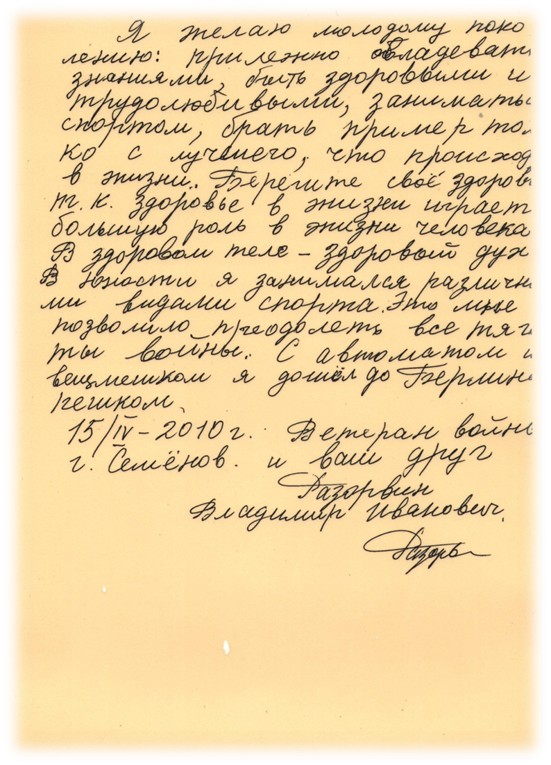 Я желаю молодому поко
лению: прилежно овладеват
знаниями, быть здоровыми и
трудолюбивыми, занимать
спортом, брать пример тол
ко с лучшего, что происход
в жизни. Берегите своё здоров
т.к. здоровье в жизни играет
большую роль в жизни человека
В здоровом теле – здоровый дух
В юности я занимался различн
ми видами спорта. Это мне
позволило преодолеть все тяг
ты войны. С автоматом и
вещмешком я дошёл до Берлин
пешком.
15/IV – 2010 г. Ветеран войны
г. Семёнов. и ваш друг
Разорвин
Владимир Иванович.